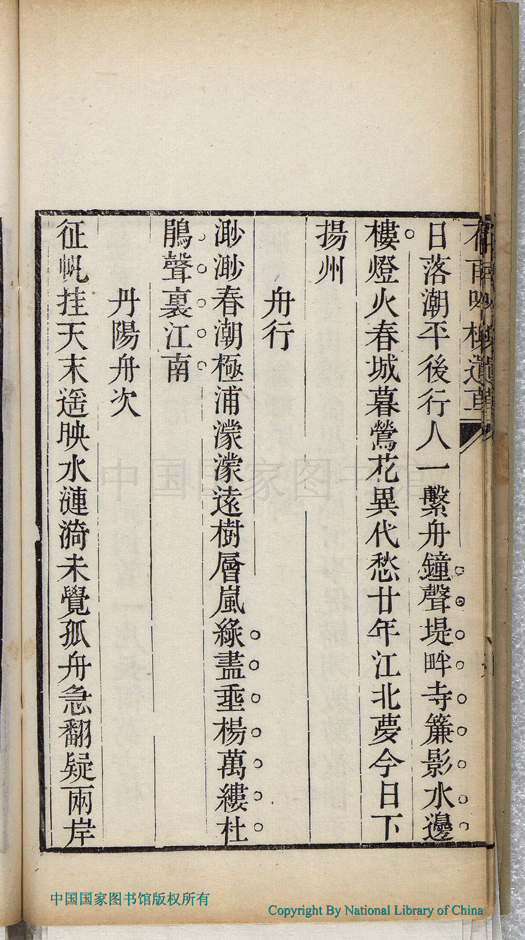 日落潮平後行人一繫舟鐘聲堤畔寺簾影水邊
樓燈火春城暮鶯花異代愁廿年江北夢今日下
揚州
舟行
渺渺春潮極浦濛濛遠樹層嵐綠盡埀楊萬縷杜
鵑聲裏江南
丹陽舟次
征帆挂天末遥映水漣漪未覺孤舟急翻疑兩岸
中国国家图书馆
中国国家图书馆版权所有
Copyright By National Library of China